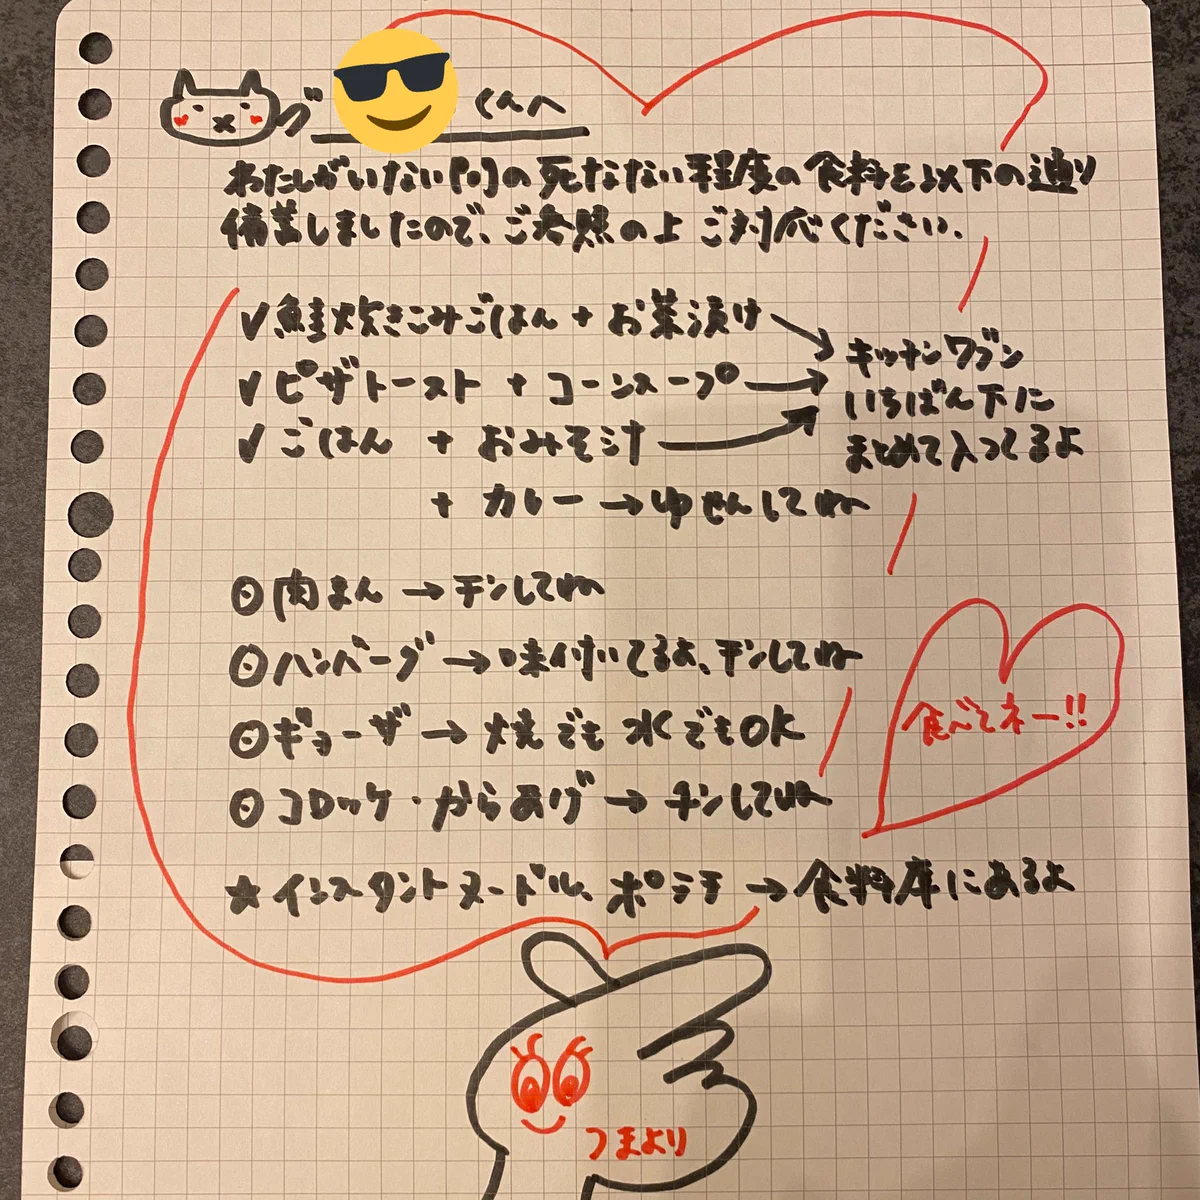 くんへ
わたしがいない間の死なない程度の食料を以下の通り
備蓄しましたので、ご参照の上ご対応ください。
✓鮭炊きこみごはん + お茶漬け
✓ピザトースト + コーンスープ→
✓ごはん + おみそ汁
キッチンワゴン
いちばん下に
まとめて入ってるよ
+ カレー→ゆせんしてね
⊙肉まん→チンしてね
⊙ハンバーグ→味付いてるよ、チンしてね
⊙ギョーザ→焼でも水でもOK
⊙コロッケ・からあげ→チンしてね
食べてネー!!
★インスタントヌードル、ポテチ→食料庫にあるよ
つまより